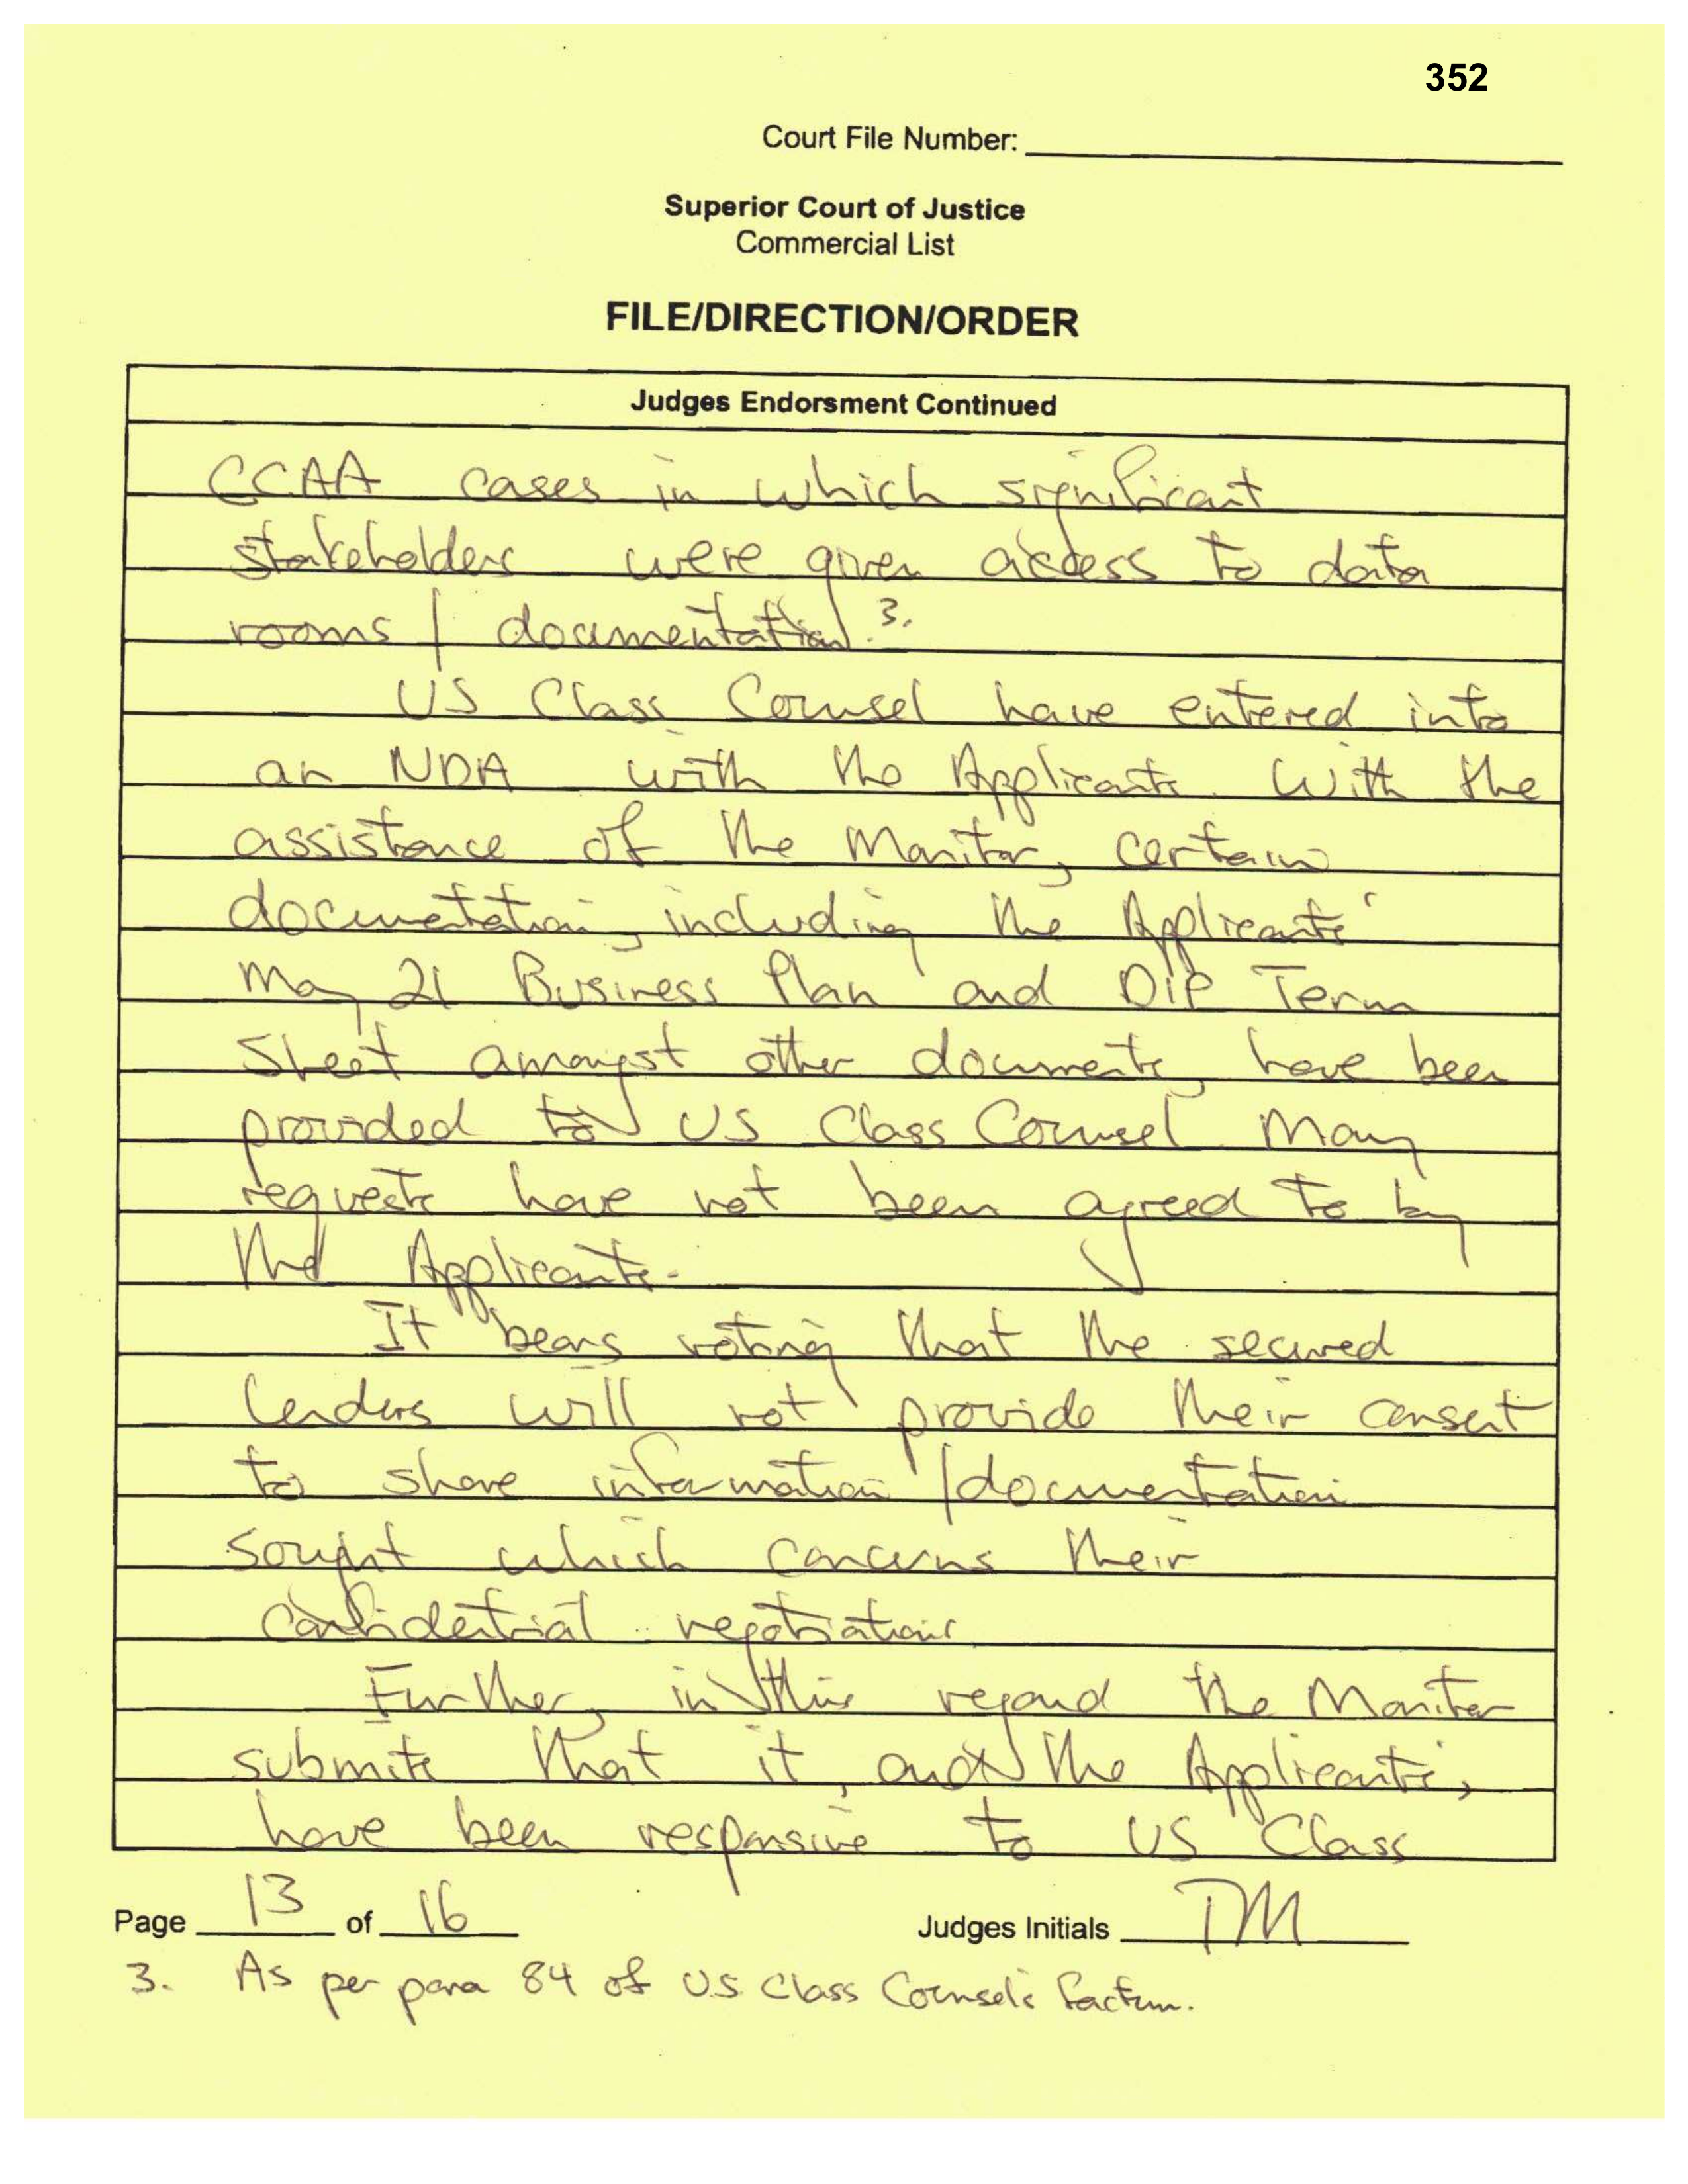 352
Court File Number:
Superior Court of Justice
Commercial List
FILE/DIRECTION/ORDER
Judges Endorsment Continued
CCAA cases in which significant
stakeholders were given access to data
rooms / documentation.3.
US Class Counsel have entered into
an NDA with the Applicants. With the
assistance of the Monitor, certain
documentation, including the Applicants'
May 21 Business Plan and DIP Term
Sheet amongst other documents, have been
provided to US Class Counsel. Many
requests have not been agreed to by
the Applicants.
It bears noting that the secured
lenders will not provide their consent
to share information / documentation
sought which concerns their
confidential negotiations.
Further, in this regard the Monitor
submits that it, and the Applicants,
have been responsive to US Class
Page 13 of 16
Judges Initials TM
3. As per para 84 of U.S. Class Counsel's factum.